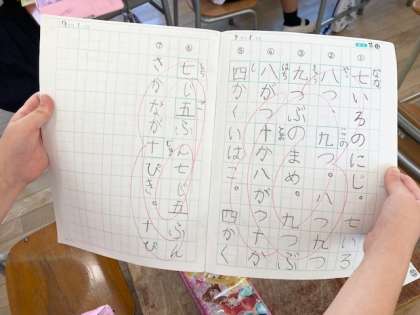 ① 七いろのにじ。七いろ
なな
② 八つ、九つ。八つ九つ
ここの
③ 九つぶのまめ。九つぶ
④ 八がつ十か八がつ十か
⑤ 四かくいはこ。四かく
⑥ 七じ五ふん七じ五ふん
⑦ さかなが十ぴき。十ぴ